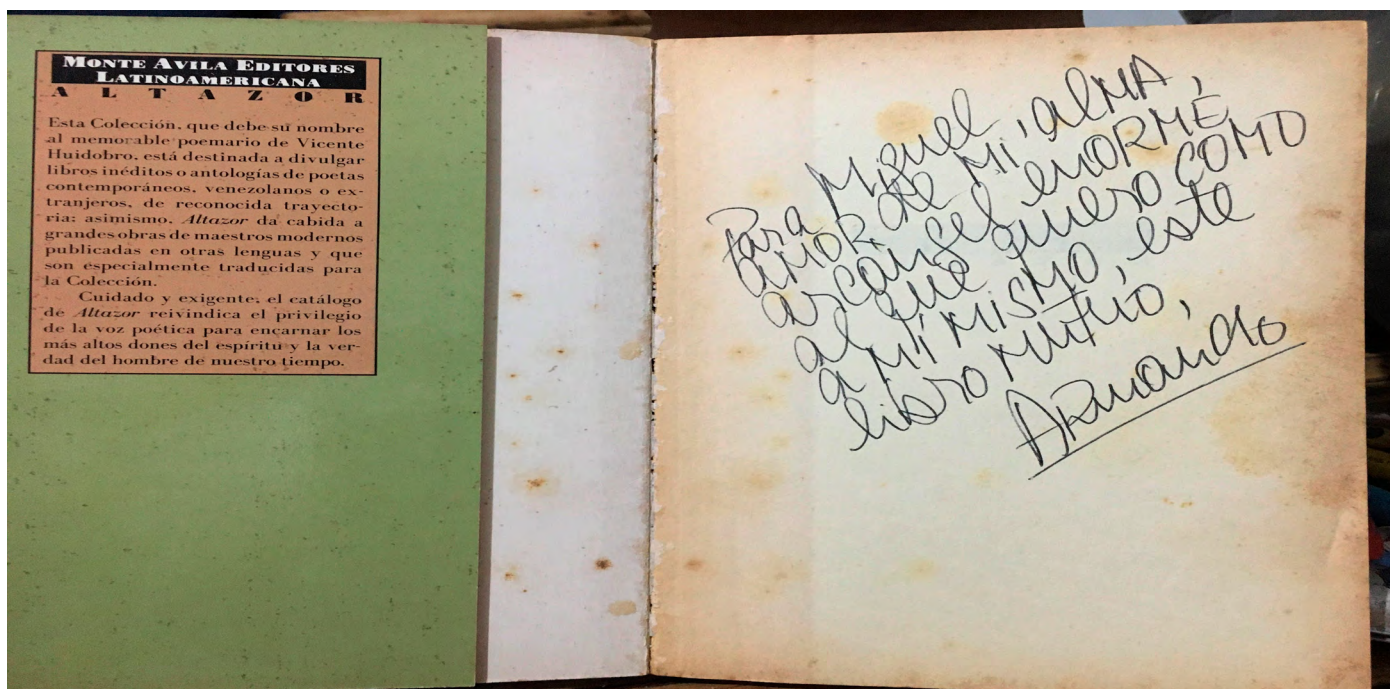 MONTE AVILA EDITORES
LATINOAMERICANA
ALTAZOR
Esta Colección, que debe su nombre
al memorable poemario de Vicente
Huidobro, está destinada a divulgar
libros inéditos o antologías de poetas
contemporáneos, venezolanos o ex-
tranjeros, de reconocida trayecto-
ria; asimismo, Altazor da cabida a
grandes obras de maestros modernos
publicadas en otras lenguas y que
son especialmente traducidas para
la Colección.
Cuidado y exigente, el catálogo
de Altazor reivindica el privilegio
de la voz poética para encarnar los
más altos dones del espíritu y la ver-
dad del hombre de nuestro tiempo.
Para Miguel
AMOR de MI alMA,
arcangel enORME
al que quiero COMO
a MÍ MISMO, este
libro
Armando